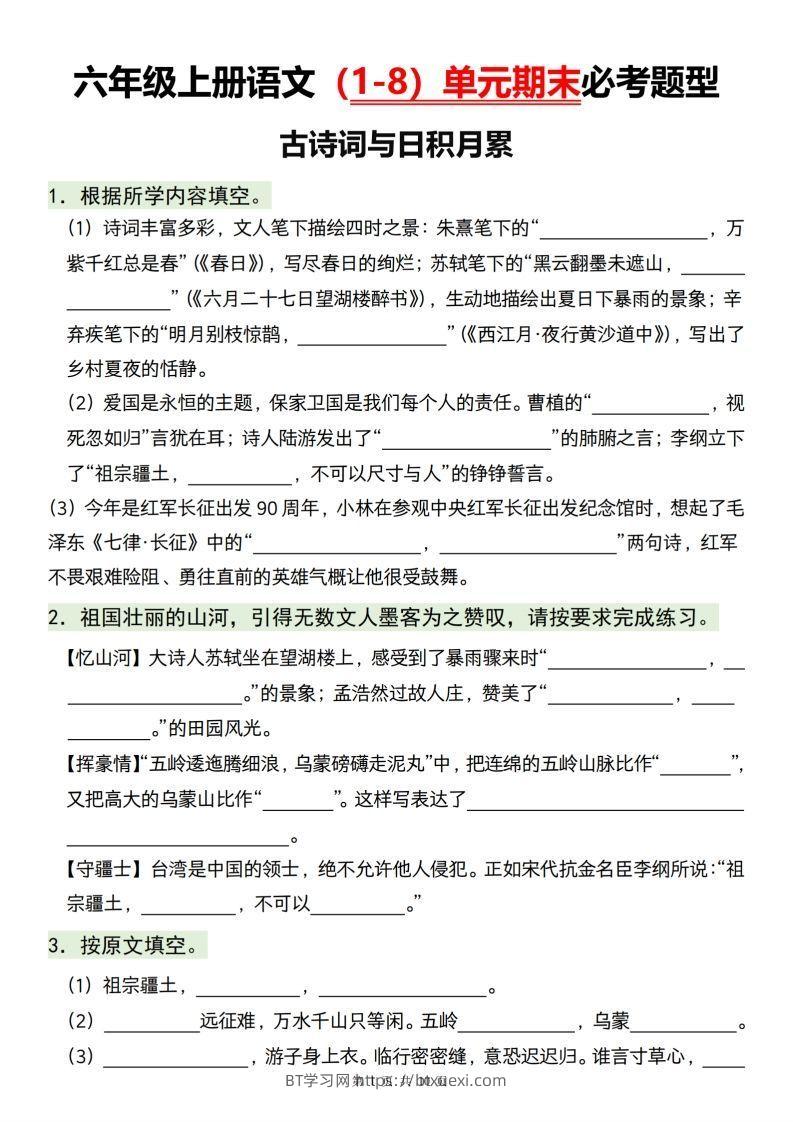 六年级上册语文（1-8）单元期末必考题型
古诗词与日积月累
1．根据所学内容填空。
（1）诗词丰富多彩，文人笔下描绘四时之景：朱熹笔下的“________________，万
紫千红总是春”（《春日》），写尽春日的绚烂；苏轼笔下的“黑云翻墨未遮山，______
__________”（《六月二十七日望湖楼醉书》），生动地描绘出夏日下暴雨的景象；辛
弃疾笔下的“明月别枝惊鹊，______________”（《西江月·夜行黄沙道中》），写出了
乡村夏夜的恬静。
（2）爱国是永恒的主题，保家卫国是我们每个人的责任。曹植的“___________，视
死忽如归”言犹在耳；诗人陆游发出了“________________”的肺腑之言；李纲立下
了“祖宗疆土，__________，不可以尺寸与人”的铮铮誓言。
（3）今年是红军长征出发 90 周年，小林在参观中央红军长征出发纪念馆时，想起了毛
泽东《七律·长征》中的“________________，________________”两句诗，红军
不畏艰难险阻、勇往直前的英雄气概让他很受鼓舞。
2．祖国壮丽的山河，引得无数文人墨客为之赞叹，请按要求完成练习。
【忆山河】大诗人苏轼坐在望湖楼上，感受到了暴雨骤来时“_______________，__
________________。”的景象；孟浩然过故人庄，赞美了“____________，____
________。”的田园风光。
【挥豪情】“五岭逶迤腾细浪，乌蒙磅礴走泥丸”中，把连绵的五岭山脉比作“_______”，
又把高大的乌蒙山比作“_______”。这样写表达了__________________________
_____________________。
【守疆士】台湾是中国的领士，绝不允许他人侵犯。正如宋代抗金名臣李纲所说：“祖
宗疆土，_________，不可以_________。”
3．按原文填空。
（1）祖宗疆土，__________，________________。
（2）_________远征难，万水千山只等闲。五岭___________，乌蒙__________。
（3）______________，游子身上衣。临行密密缝，意恐迟迟归。谁言寸草心，____
BT学习网 https://btxuexi.com